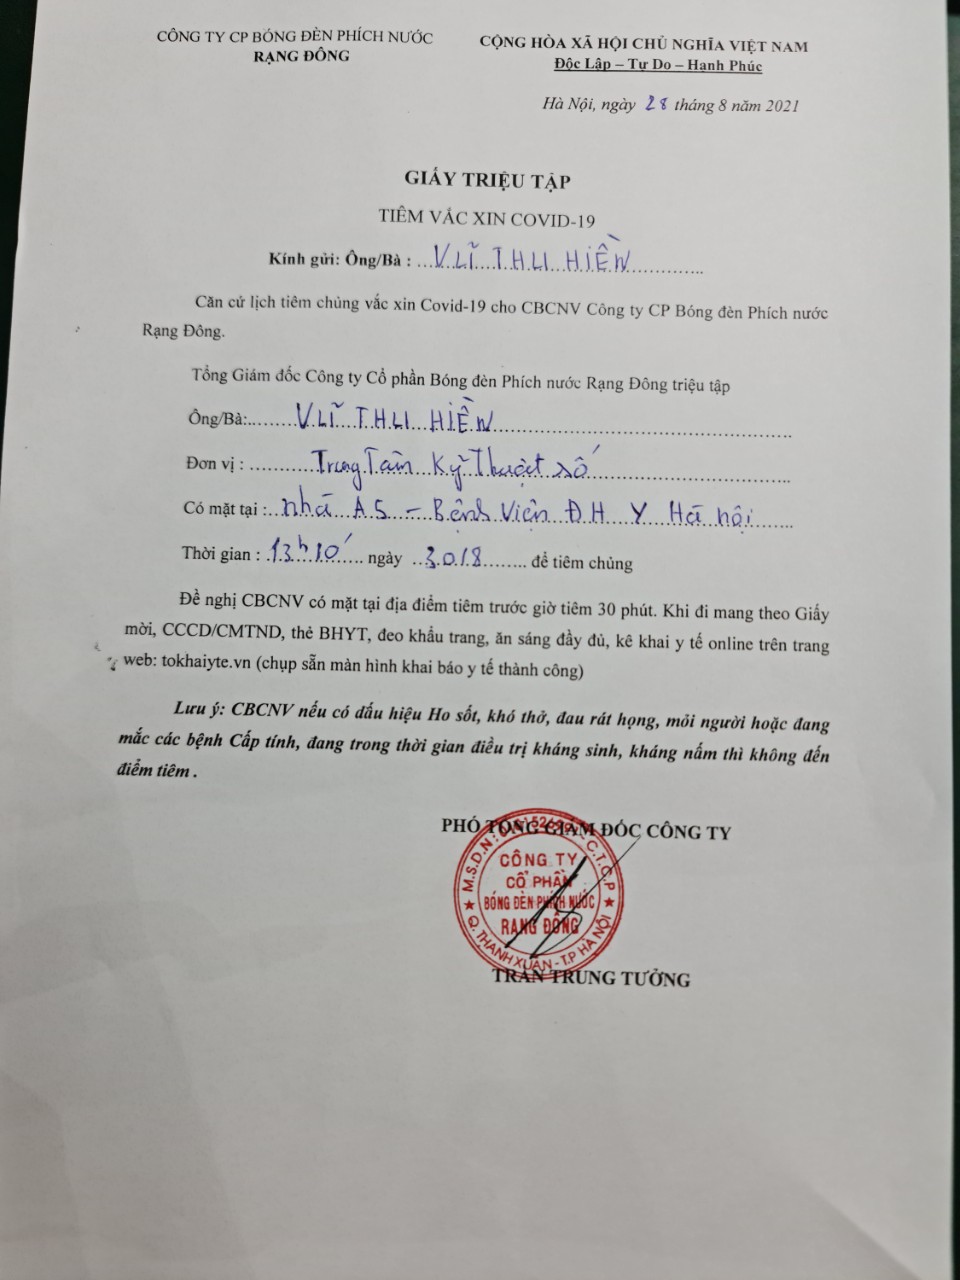 CÔNG TY CP BÓNG ĐÈN PHÍCH NƯỚC
RẠNG ĐÔNG
CỘNG HÒA XÃ HỘI CHỦ NGHĨA VIỆT NAM
Độc Lập – Tự Do – Hạnh Phúc
Hà Nội, ngày 28 tháng 8 năm 2021
GIẤY TRIỆU TẬP
TIÊM VẮC XIN COVID-19
Kính gửi: Ông/Bà : VŨ THU HIỀN
Căn cứ lịch tiêm chủng vắc xin Covid-19 cho CBCNV Công ty CP Bóng đèn Phích nước
Rạng Đông.
Tổng Giám đốc Công ty Cổ phần Bóng đèn Phích nước Rạng Đông triệu tập
Ông/Bà: VŨ THU HIỀN
Đơn vị : Trung Tâm Kỹ Thuật số
Có mặt tại : nhà A5 – Bệnh Viện ĐH Y Hà nội
Thời gian : 13h10' ngày 30/8 để tiêm chủng
Đề nghị CBCNV có mặt tại địa điểm tiêm trước giờ tiêm 30 phút. Khi đi mang theo Giấy
mời, CCCD/CMTND, thẻ BHYT, đeo khẩu trang, ăn sáng đầy đủ, kê khai y tế online trên trang
web: tokhaiyte.vn (chụp sẵn màn hình khai báo y tế thành công)
Lưu ý: CBCNV nếu có dấu hiệu Ho sốt, khó thở, đau rát họng, mỏi người hoặc đang
mắc các bệnh Cấp tính, đang trong thời gian điều trị kháng sinh, kháng nấm thì không đến
điểm tiêm .
PHÓ TỔNG GIÁM ĐỐC CÔNG TY
M.S.D.N: C.T.C.P
CÔNG TY
CỔ PHẦN
BÓNG ĐÈN PHÍCH NƯỚC
RẠNG ĐÔNG
Q. THANH XUÂN - T.P HÀ NỘI
TRẦN TRUNG TƯỞNG